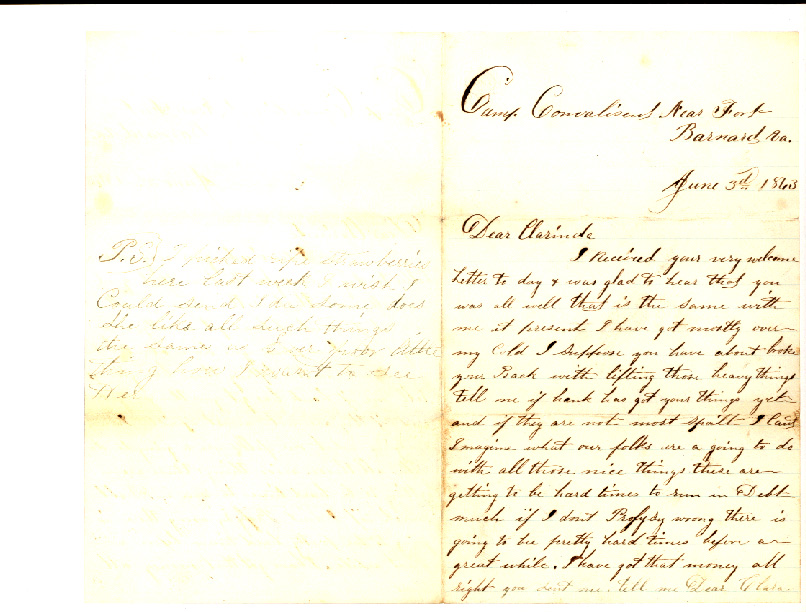 Camp Convalisent Near Fort
Barnard Va.
June 3rd 1863
Dear Clarinda
I Received your very welcome
Letter to day & was glad to hear that you
was all well that is the same with
me at present I have got mostly over
my Cold I Suppose you have about broke
your Back with lifting those heavy things
tell me if hank has got your things yet
and if they are not most spoilt I Cant
Imagine what our folks are a going to do
with all those nice things these are
getting to be hard times to run in Debt
much if I dont Profysy wrong there is
going to be pretty hard times before a
great while. I have got that money all
right you tell me Dear Clara
P.S. I picked ripe strawberries
here last week I wish I
Could send Ida some does
She like all such things
the same as ever poor little
thing how I want to see
Her